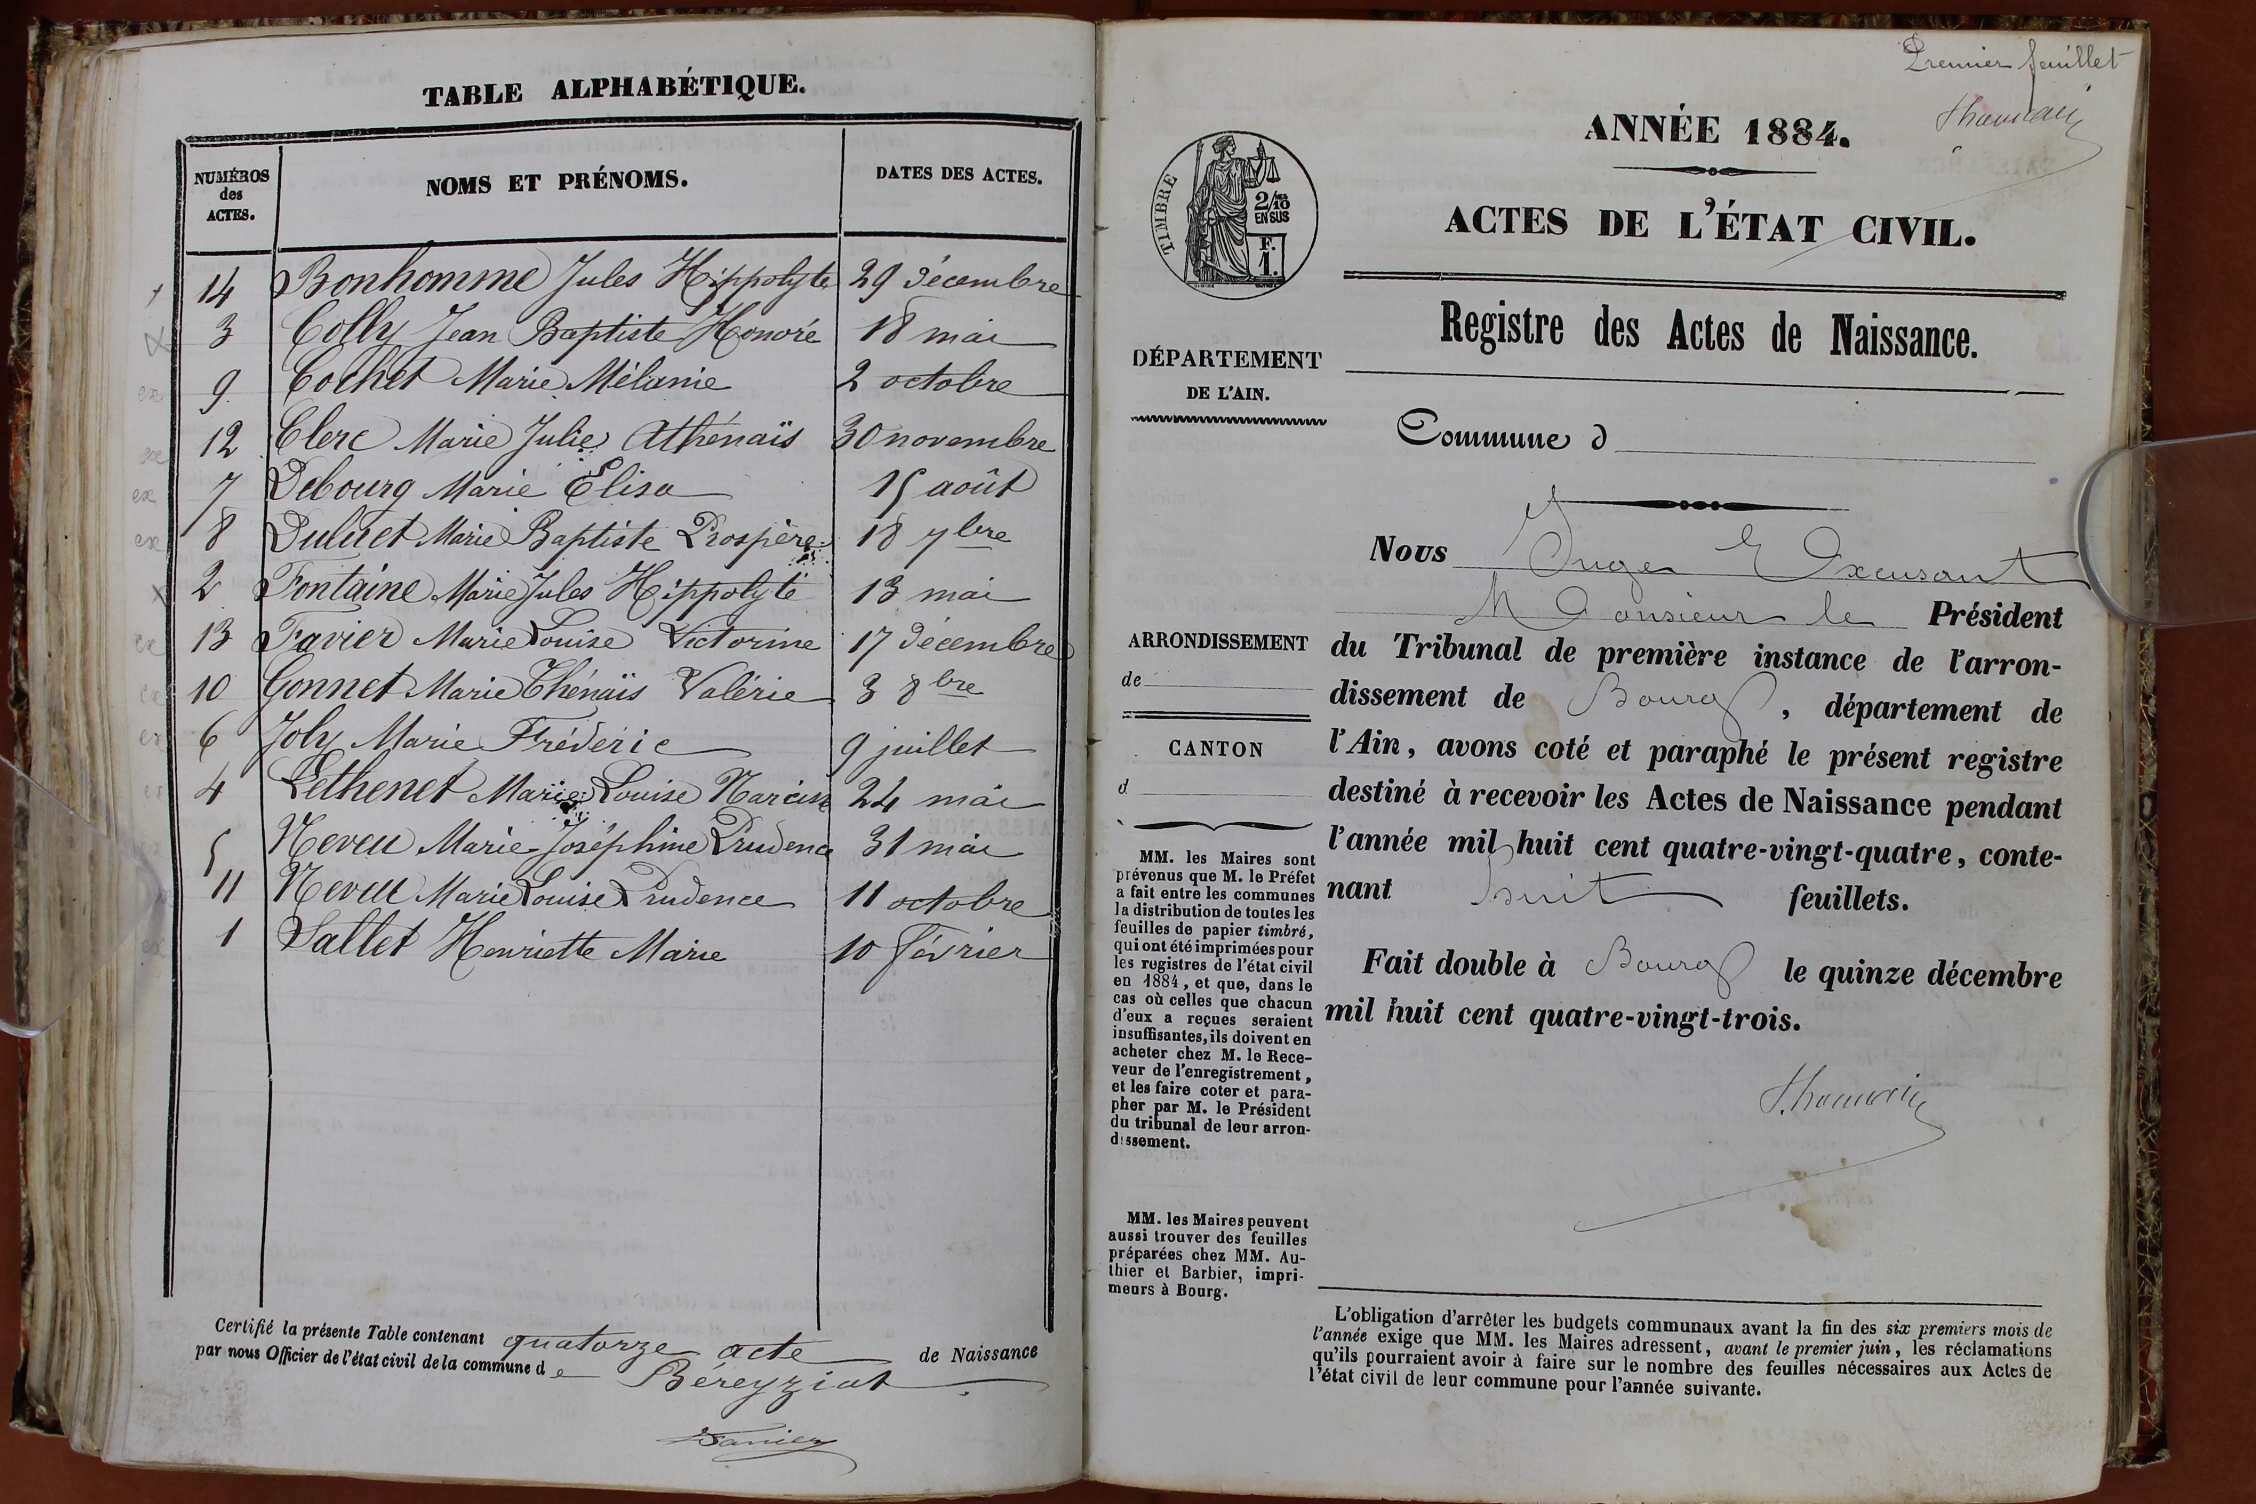 TABLE ALPHABÉTIQUE.
NUMÉROS
des
ACTES.
NOMS ET PRÉNOMS.
DATES DES ACTES.
14 Bonhomme Jules Hippolyte 29 décembre
3 Colly Jean Baptiste Honoré 18 mai
9 Cochet Marie Mélanie 2 octobre
12 Clerc Marie Julie Athénaïs 30 novembre
7 Debourg Marie Elisa 15 août
8 Duluet Marie Baptiste Prospère 18 7bre
2 Fontaine Marie Jules Hippolyte 13 mai
13 Favier Marie Louise Victorine 17 décembre
10 Gonnet Marie Thénaïs Valérie 3 8bre
6 Joly Marie Fréderic 9 juillet
4 Lethenet Marie Louise Narcisse 24 mai
5 Neveu Marie Joséphine Prudence 31 mai
11 Neveu Marie Louise Prudence 11 octobre
1 Sallet Henriette Marie 10 février
Certifié la présente Table contenant quatorze acte de Naissance
par nous Officier de l'état civil de la commune de Béreyziat
Premier feuillet
ANNÉE 1884.
TIMBRE
2/10
EN SUS
F.
1.
ACTES DE L'ÉTAT CIVIL.
Registre des Actes de Naissance.
DÉPARTEMENT
DE L'AIN.
Commune d
ARRONDISSEMENT
de
CANTON
d
MM. les Maires sont
prévenus que M. le Préfet
a fait entre les communes
la distribution de toutes les
feuilles de papier timbré,
qui ont été imprimées pour
les registres de l'état civil
en 1884, et que, dans le
cas où celles que chacun
d'eux a reçues seraient
insuffisantes, ils doivent en
acheter chez M. le Rece-
veur de l'enregistrement,
et les faire coter et para-
pher par M. le Président
du tribunal de leur arron-
dissement.
MM. les Maires peuvent
aussi trouver des feuilles
préparées chez MM. Au-
thier et Barbier, impri-
meurs à Bourg.
Nous Juge Excusant
Monsieur le Président
du Tribunal de première instance de l'arron-
dissement de Bourg, département de
l'Ain, avons coté et paraphé le présent registre
destiné à recevoir les Actes de Naissance pendant
l'année mil huit cent quatre-vingt-quatre, conte-
nant huit feuillets.
Fait double à Bourg le quinze décembre
mil huit cent quatre-vingt-trois.
L'obligation d'arrêter les budgets communaux avant la fin des six premiers mois de
l'année exige que MM. les Maires adressent, avant le premier juin, les réclamations
qu'ils pourraient avoir à faire sur le nombre des feuilles nécessaires aux Actes de
l'état civil de leur commune pour l'année suivante.